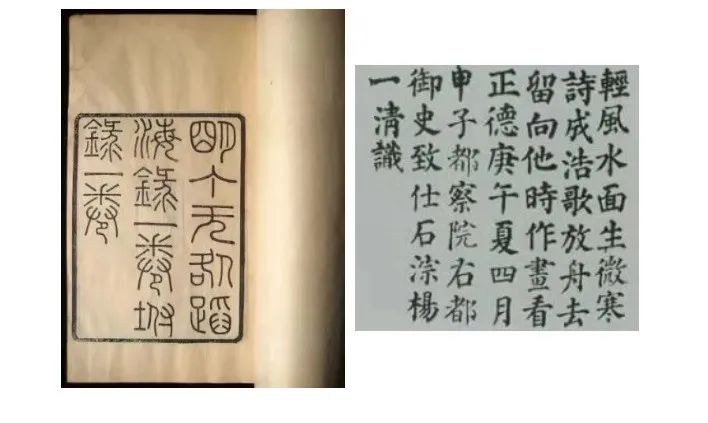 明丁元吉蹈
海錄一卷坿
錄一卷
輕風水面生微寒
詩成浩歌放舟去
留向他時作畫看
正德庚午夏四月
甲子都察院右都
御史致仕石淙楊
一清識